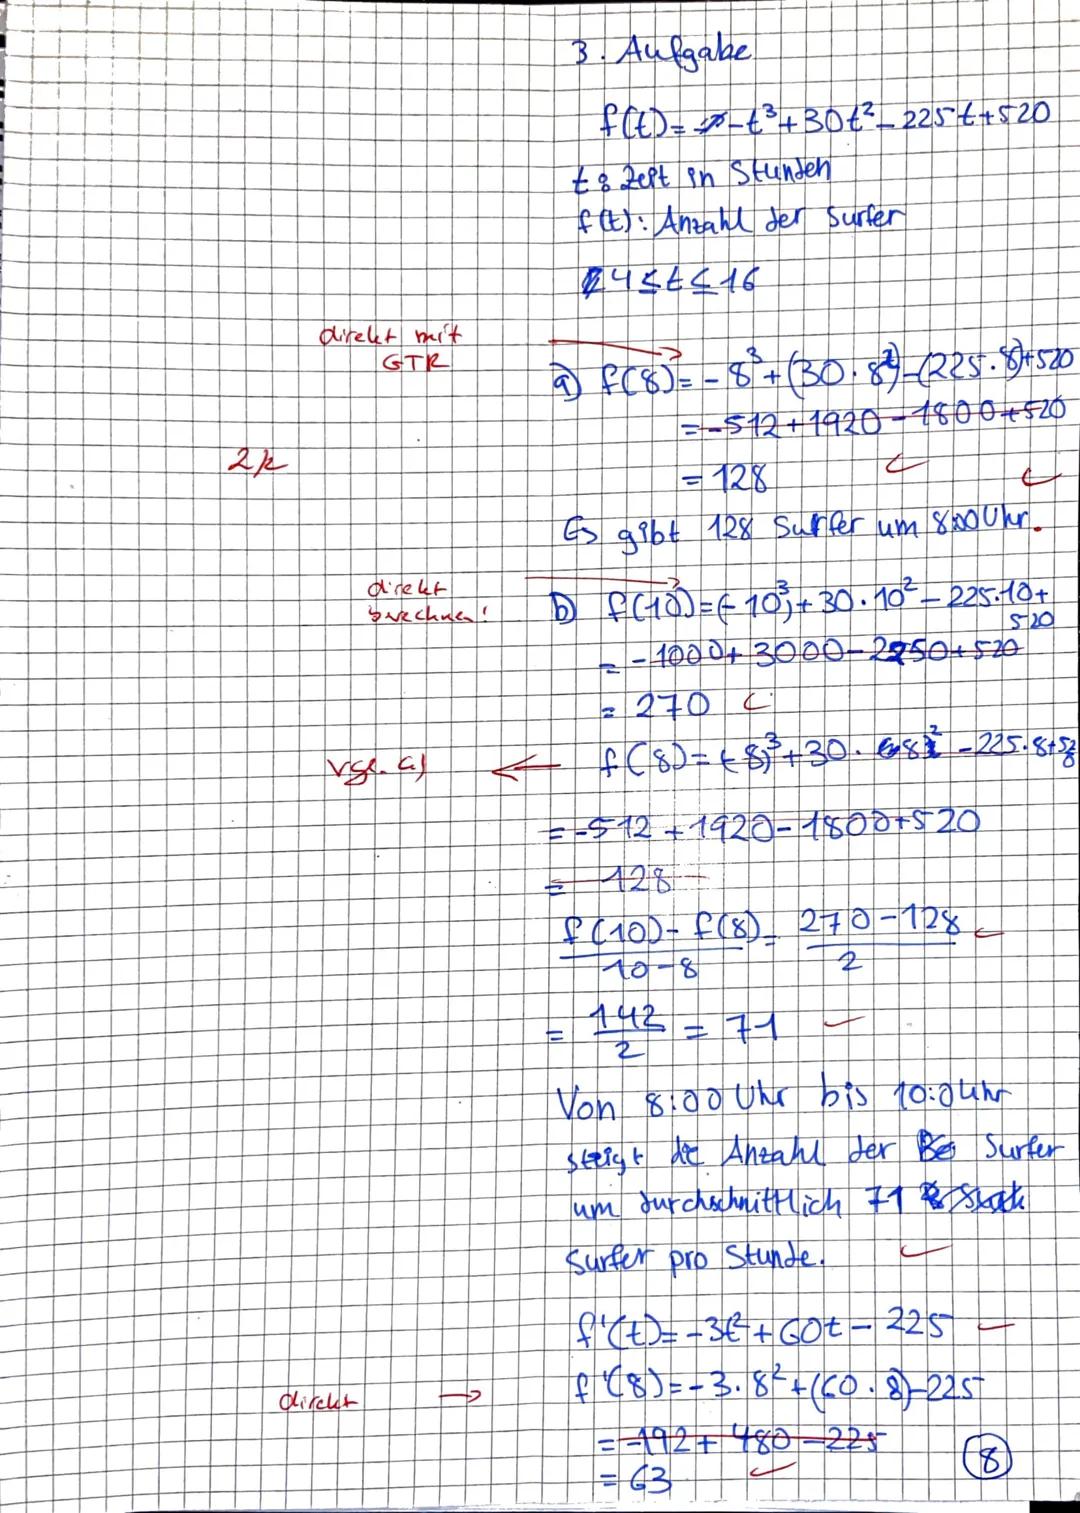 3. Aufgabe
f(t)= -t³+30t²-225t+520
t: Zeit in Stunden
f(t): Anzahl der Surfer
4≤t≤16
direkt mit
GTR
a) f(8)=-8³+(30·8²)-(225·8)+520
=-512+1920-1800+520
= 128
Es gibt 128 Surfer um 8:00 Uhr.
direkt
berechnen!
b) f(10)=(-10³)+30·10²-225·10+
520
=-1000+3000-2250+520
= 270
vgl. a)
f(8)=(-8)³+30·8²-225·8+520
=-512+1920-1800+520
= 128
f(10)-f(8) = 270-128
10-8 2
= 142 = 71
2
Von 8:00 Uhr bis 10:0 Uhr
steigt die Anzahl der Surfer
um durchschnittlich 71
Surfer pro Stunde.
f'(t)=-3t²+60t-225
direkt
f'(8)=-3·8²+(60·8)-225
=-192+480-225
= 63
8